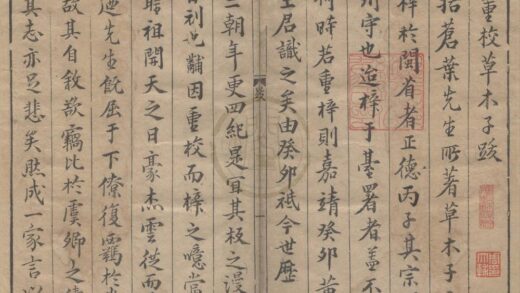 重校草木子跋
括蒼葉先生所著草木子
梓於閩省者正德丙子其宗
州守也迨梓于臺署者盖不
何時若重梓則嘉靖癸卯黃
生居識之矣由癸卯祗今世歷
跋
三朝年更四紀是宜其板之漫
利也黼因重校而梓之噫當
聖祖開天之日豪杰雲從而
先生既屈于下僚復羈於
故其自敘竊比於虞卿之
其志亦足悲矣然成一家言以